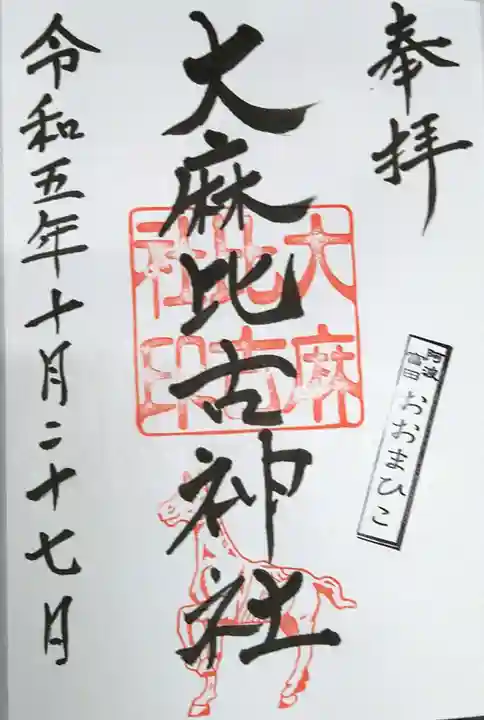 奉拝
阿波
富田
おおまひこ
大麻比古神社
大麻
比古
社印
令和五年十月二十七月